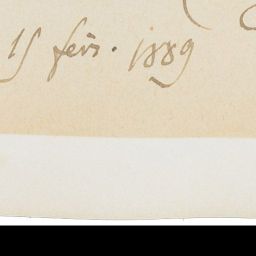 15 fév. 1889